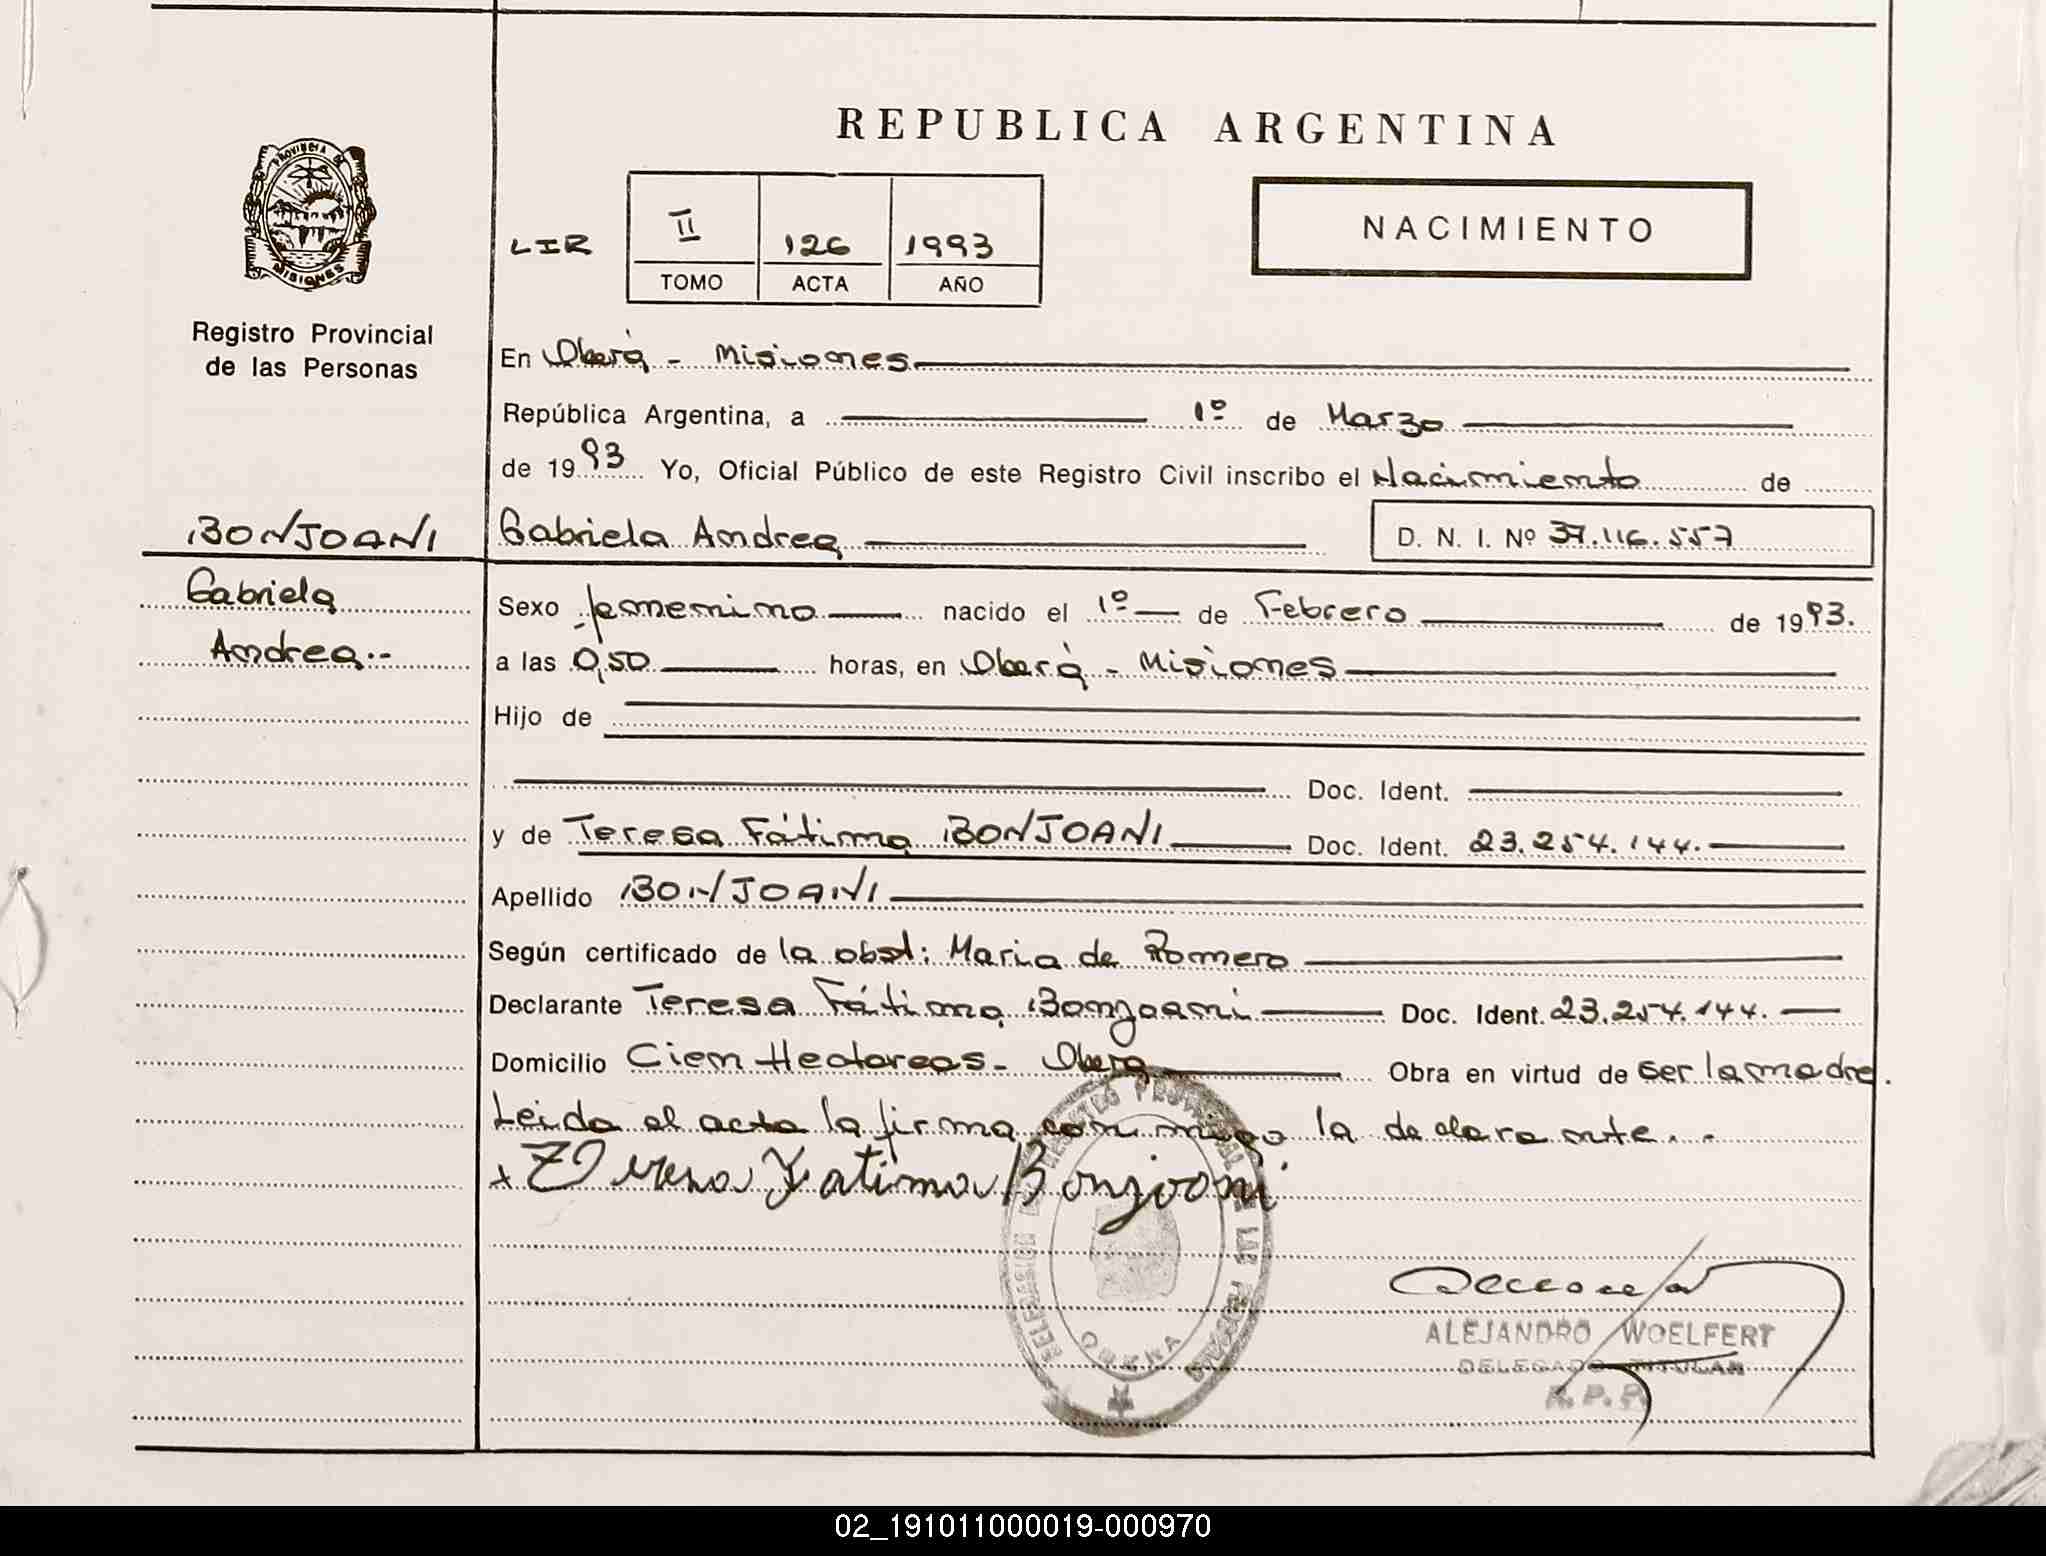 REPUBLICA ARGENTINA
PROVINCIA DE
MISIONES
Registro Provincial
de las Personas
NACIMIENTO
LIR II 126 1993
TOMO ACTA AÑO
En Oberá - Misiones
República Argentina, a 1º de Marzo
de 1993 Yo, Oficial Público de este Registro Civil inscribo el Nacimiento de
BONJOANI Gabriela Andrea D. N. I. Nº 37.116.557
Gabriela
Andrea.-
Sexo femenino nacido el 1º de Febrero de 1993.
a las 0,50 horas, en Oberá - Misiones
Hijo de
Doc. Ident.
y de Teresa Fátima BONJOANI Doc. Ident. 23.254.144.
Apellido BONJOANI
Según certificado de la obst: Maria de Romero
Declarante Teresa Fátima Bonjoani Doc. Ident. 23.254.144.
Domicilio Cien Hectareas - Obera Obra en virtud de ser la madre.
Leida el acta la firma conmigo la declarante. -
Fatima Bonjoani
DELEGACION REGISTRO PROVINCIAL DE LAS PERSONAS
OBERA
ALEJANDRO WOELFERT
DELEGADO TITULAR
R.P.P.
02_191011000019-000970